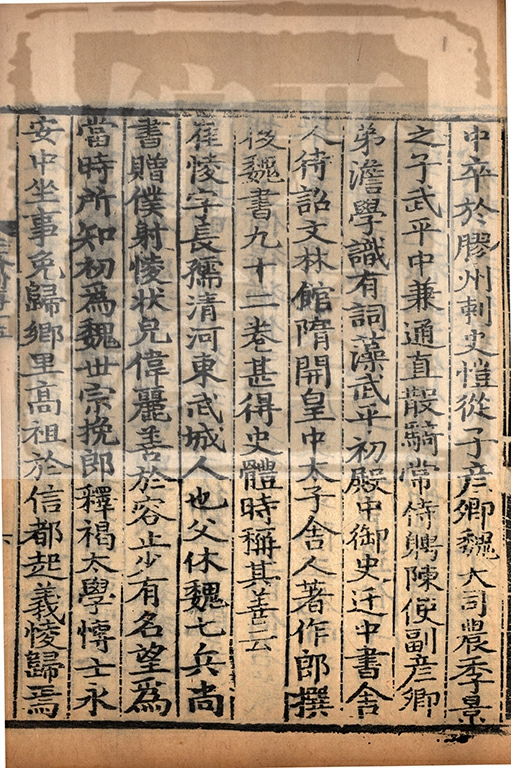 中卒於膠州刺史愷從子彦卿魏大司農季景
之子武平中兼通直散騎常侍聘陳使副彦卿
弟澹學識有詞藻武平初殿中御史迁中書舎
人待詔文林館隋開皇中太子舎人著作郎撰
後魏書九十二卷甚得史體時稱其善云
崔㥄字長孺清河東武城人也父休魏七兵尚
書贈僕射㥄状皃偉麗善於容止少有名望為
當時所知初爲魏世宗挽郎釋褐太學愽士永
安中坐事免歸鄉里高祖於信都起義㥄歸焉